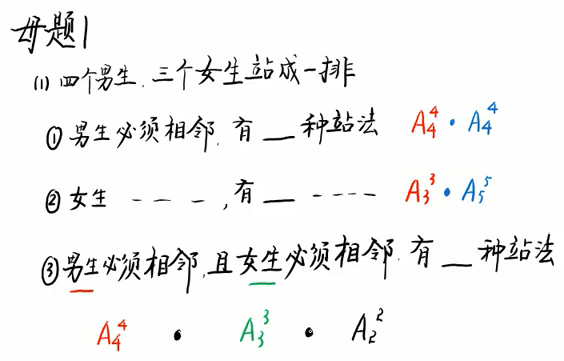 母题1
(1) 四个男生、三个女生站成一排
① 男生必须相邻, 有 __ 种站法 A₄⁴ · A₄⁴
② 女生 - - - -, 有 __ - - - - A₃³ · A₅⁵
③ 男生必须相邻, 且女生必须相邻. 有 __ 种站法
A₄⁴ · A₃³ · A₂²